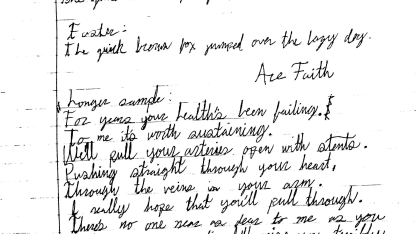 The quick brown fox jumped over the lazy dog.
Ace Faith
Longer sample:
For years your health's been failing.
To me it's worth sustaining.
We'll pull your arteries open with stents.
Pushing straight through your heart,
Through the veins in your arm.
I really hope that you'll pull through.
There's no one near as dear to me as you